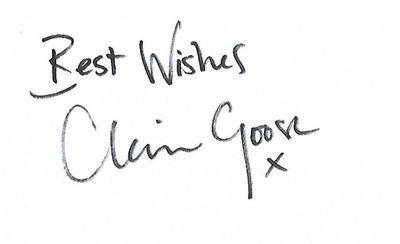 Best Wishes
Claire Goose
x